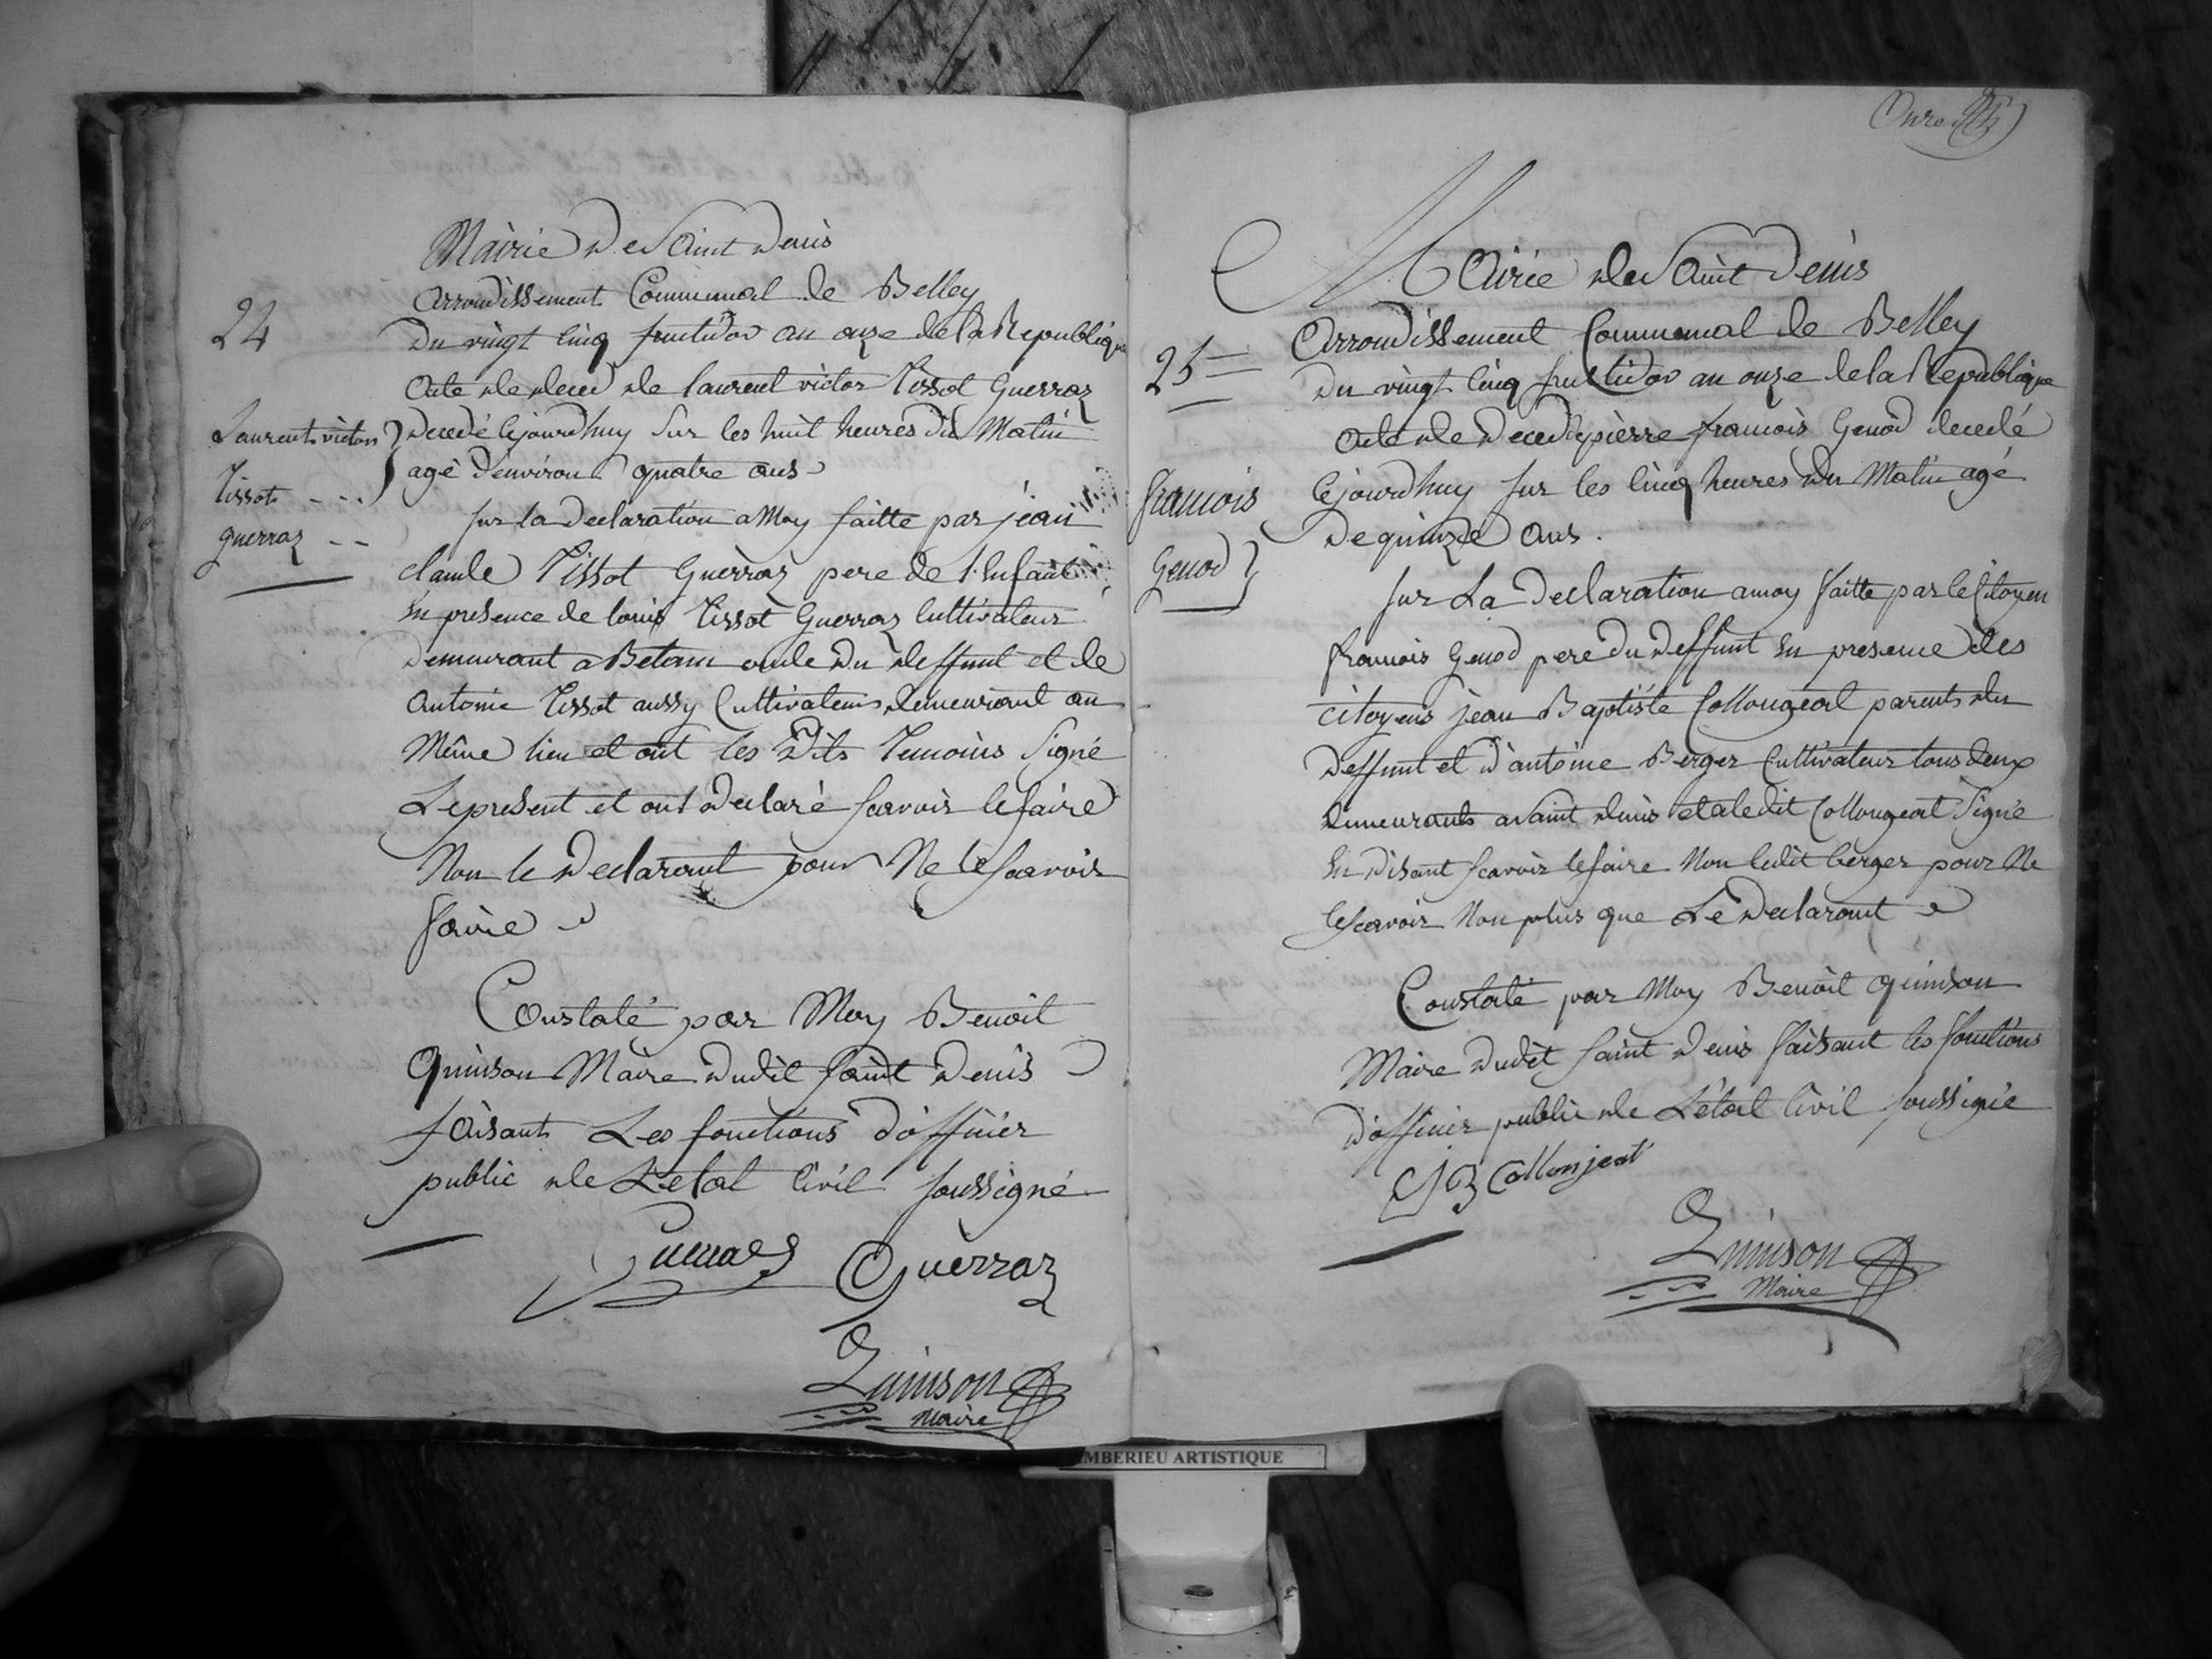 Mairie de Saint Denis
Arrondissement Communal de Belley
24
Du vingt cinq fructidor an onze de la Republique
Acte de deces de laurent victor Tissot Guerraz
Laurent victor
Tissot
guerraz
decedé cejourdhuy sur les huit heures du Matin
agé d'environ quatre ans
sur la declaration a Moy faitte par jean
claude Tissot Guerraz pere de l'enfant
en presence de louis Tissot Guerraz Cultivateur
demeurant a Betam oncle du deffunt et de
antoine Tissot aussy Cultivateur demeurant au
Même lieu et ont les dits Temoins Signé
Le present et ont declaré scavoir le faire
Non le declarant pour Ne le scavoir
faire
Constaté par Moy Benoit
Quinson Maire dudit saint Denis
faisant Les fonctions d'officier
public de L'etat Civil soussigné
Guerraz
Quinson
Maire
Onze
Mairie de Saint Denis
Arrondissement Communal de Belley
25
Du vingt cinq fructidor an onze de la Republique
Acte de deces de pierre francois Genod decedé
francois
Genod
cejourdhuy sur les cinq heures du Matin agé
De quinze ans.
sur La declaration a moy faitte par le Citoyen
francois Genod pere du deffunt en presence des
citoyens jean Baptiste Collongeat parent du
deffunt et d'antoine Berger Cultivateur tous deux
demeurants a saint denis et a ledit Collongeat Signé
en disant scavoir le faire Non ledit berger pour Ne
le scavoir Non plus que Le declarant
Constaté par Moy Benoit quinson
Maire dudit saint Denis faisant les fonctions
d'officier public de L'etat Civil soussigné
JB Collonjeat
Quinson
Maire
MBERIEU ARTISTIQUE